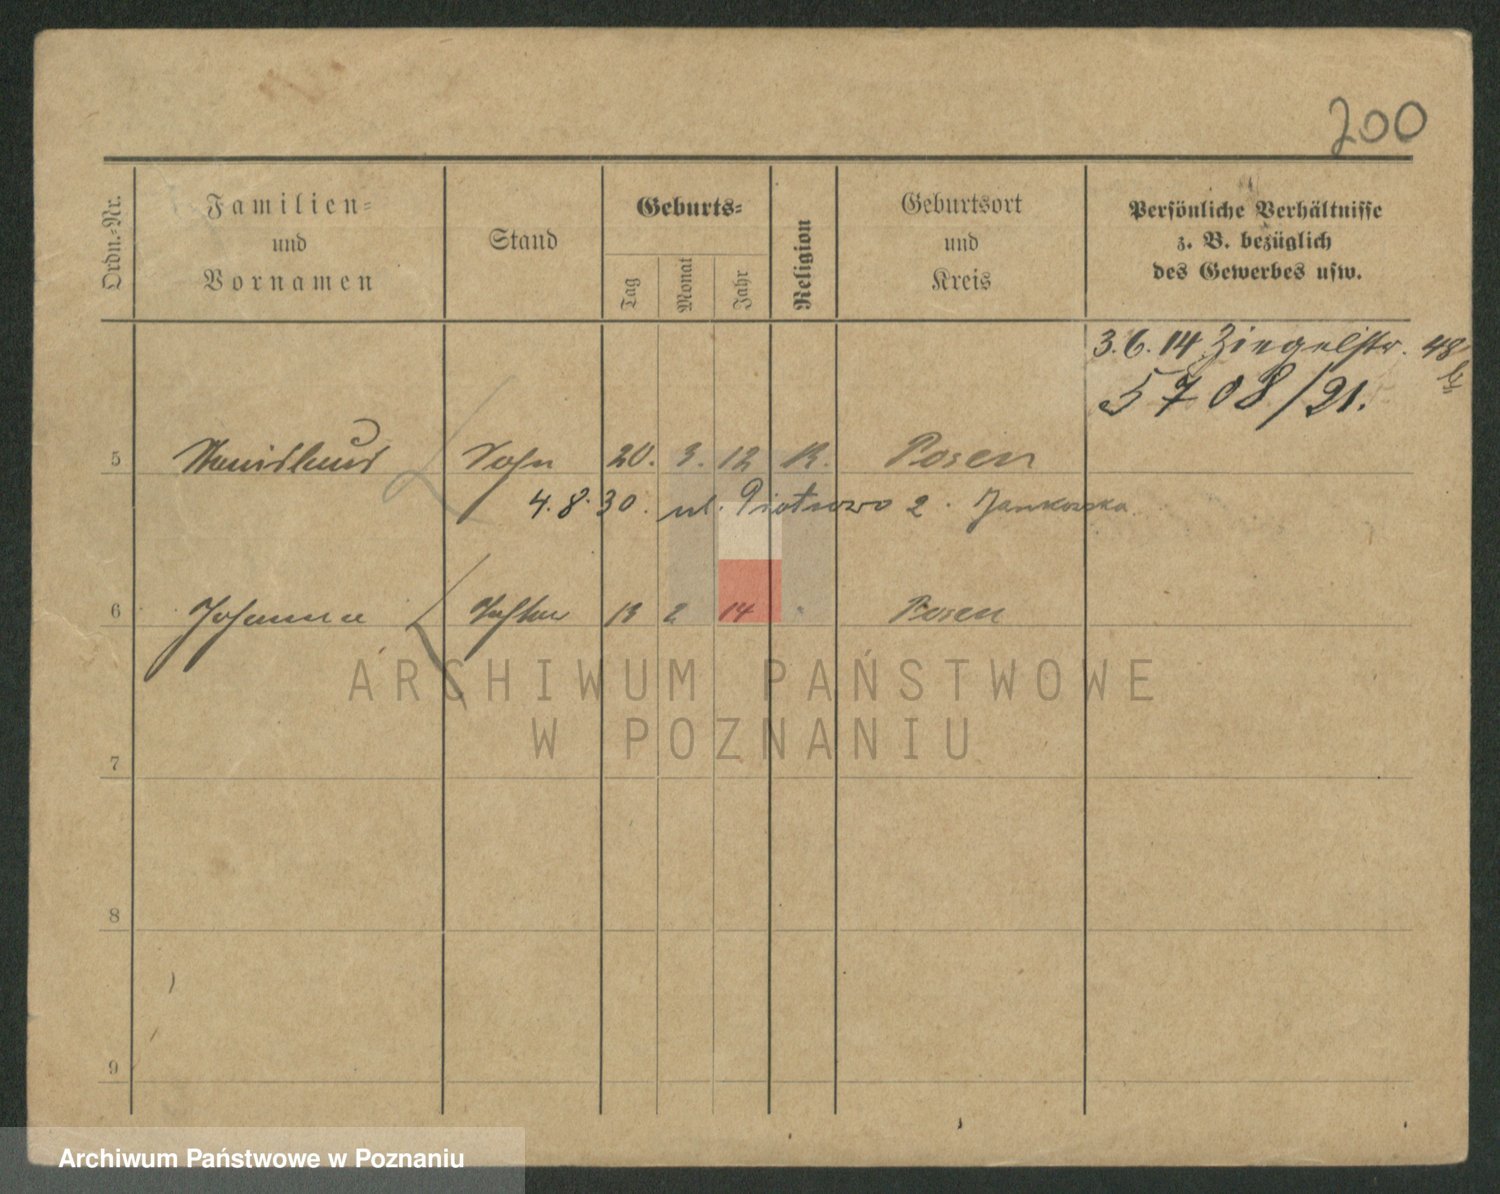 200
Ordn.-Nr.
Familien-
und
Vornamen
Stand
Geburts-
Tag
Monat
Jahr
Religion
Geburtsort
und
Kreis
Persönliche Verhältnisse
z. B. bezüglich
des Gewerbes usw.
3.6.14 Ziegelstr. 48
5708/21.
5 Stanislaus Sohn 20. 3. 12 K. Posen
4.8.30. ul. Piotrowo 2. Jankowska
6 Johanna Tochter 13 2 14 Posen
7
8
9
ARCHIWUM PAŃSTWOWE
W POZNANIU
Archiwum Państwowe w Poznaniu